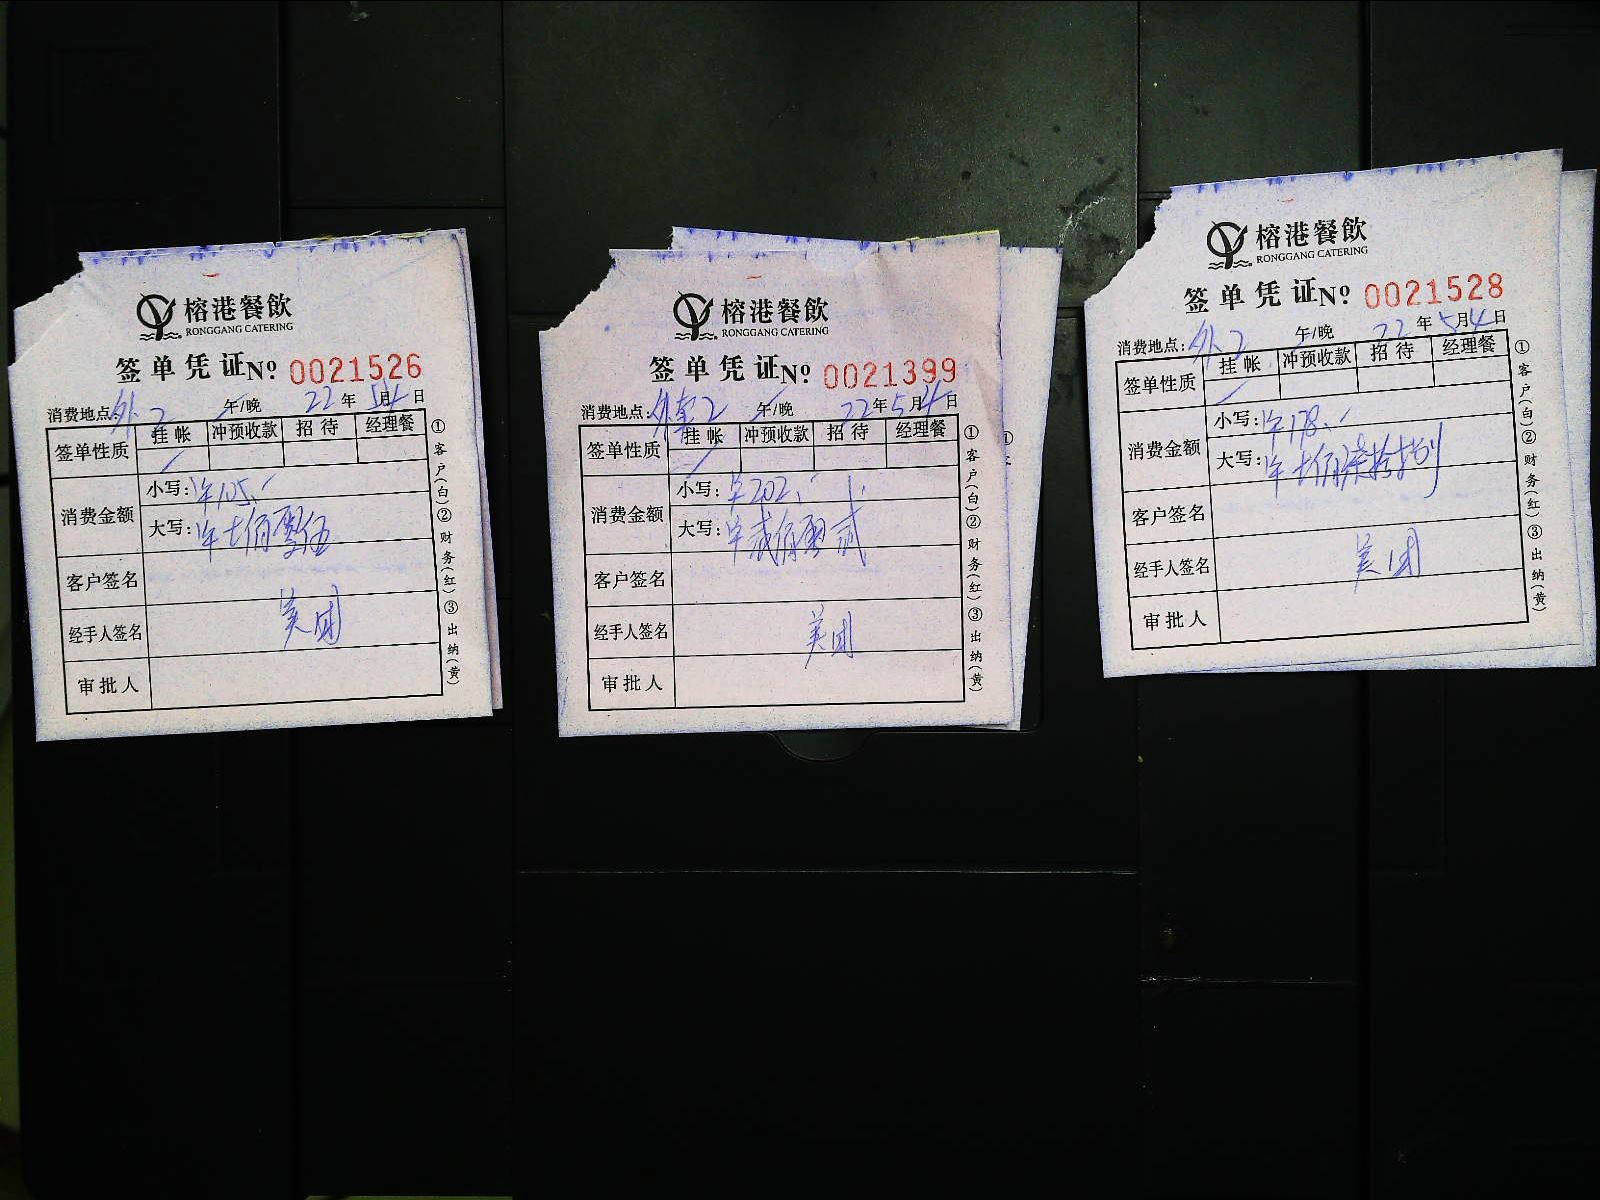 榕港餐飲
RONGGANG CATERING
签单凭证№ 0021526
消费地点: 外2 午/晚 22年5月4日
签单性质 挂帐 冲预收款 招待 经理餐
消费金额
小写: ¥105.-
大写: 壹佰零伍
客户签名
经手人签名 美团
审批人
①客户(白)②财务(红)③出纳(黄)
榕港餐飲
RONGGANG CATERING
签单凭证№ 0021399
消费地点: 外卖2 午/晚 22年5月4日
签单性质 挂帐 冲预收款 招待 经理餐
消费金额
小写: ¥202.-
大写: 贰佰零贰
客户签名
经手人签名 美团
审批人
①客户(白)②财务(红)③出纳(黄)
①客
榕港餐飲
RONGGANG CATERING
签单凭证№ 0021528
消费地点: 外2 午/晚 22年5月4日
签单性质 挂帐 冲预收款 招待 经理餐
消费金额
小写: ¥178.-
大写: 壹佰柒拾捌
客户签名
经手人签名 美团
审批人
①客户(白)②财务(红)③出纳(黄)